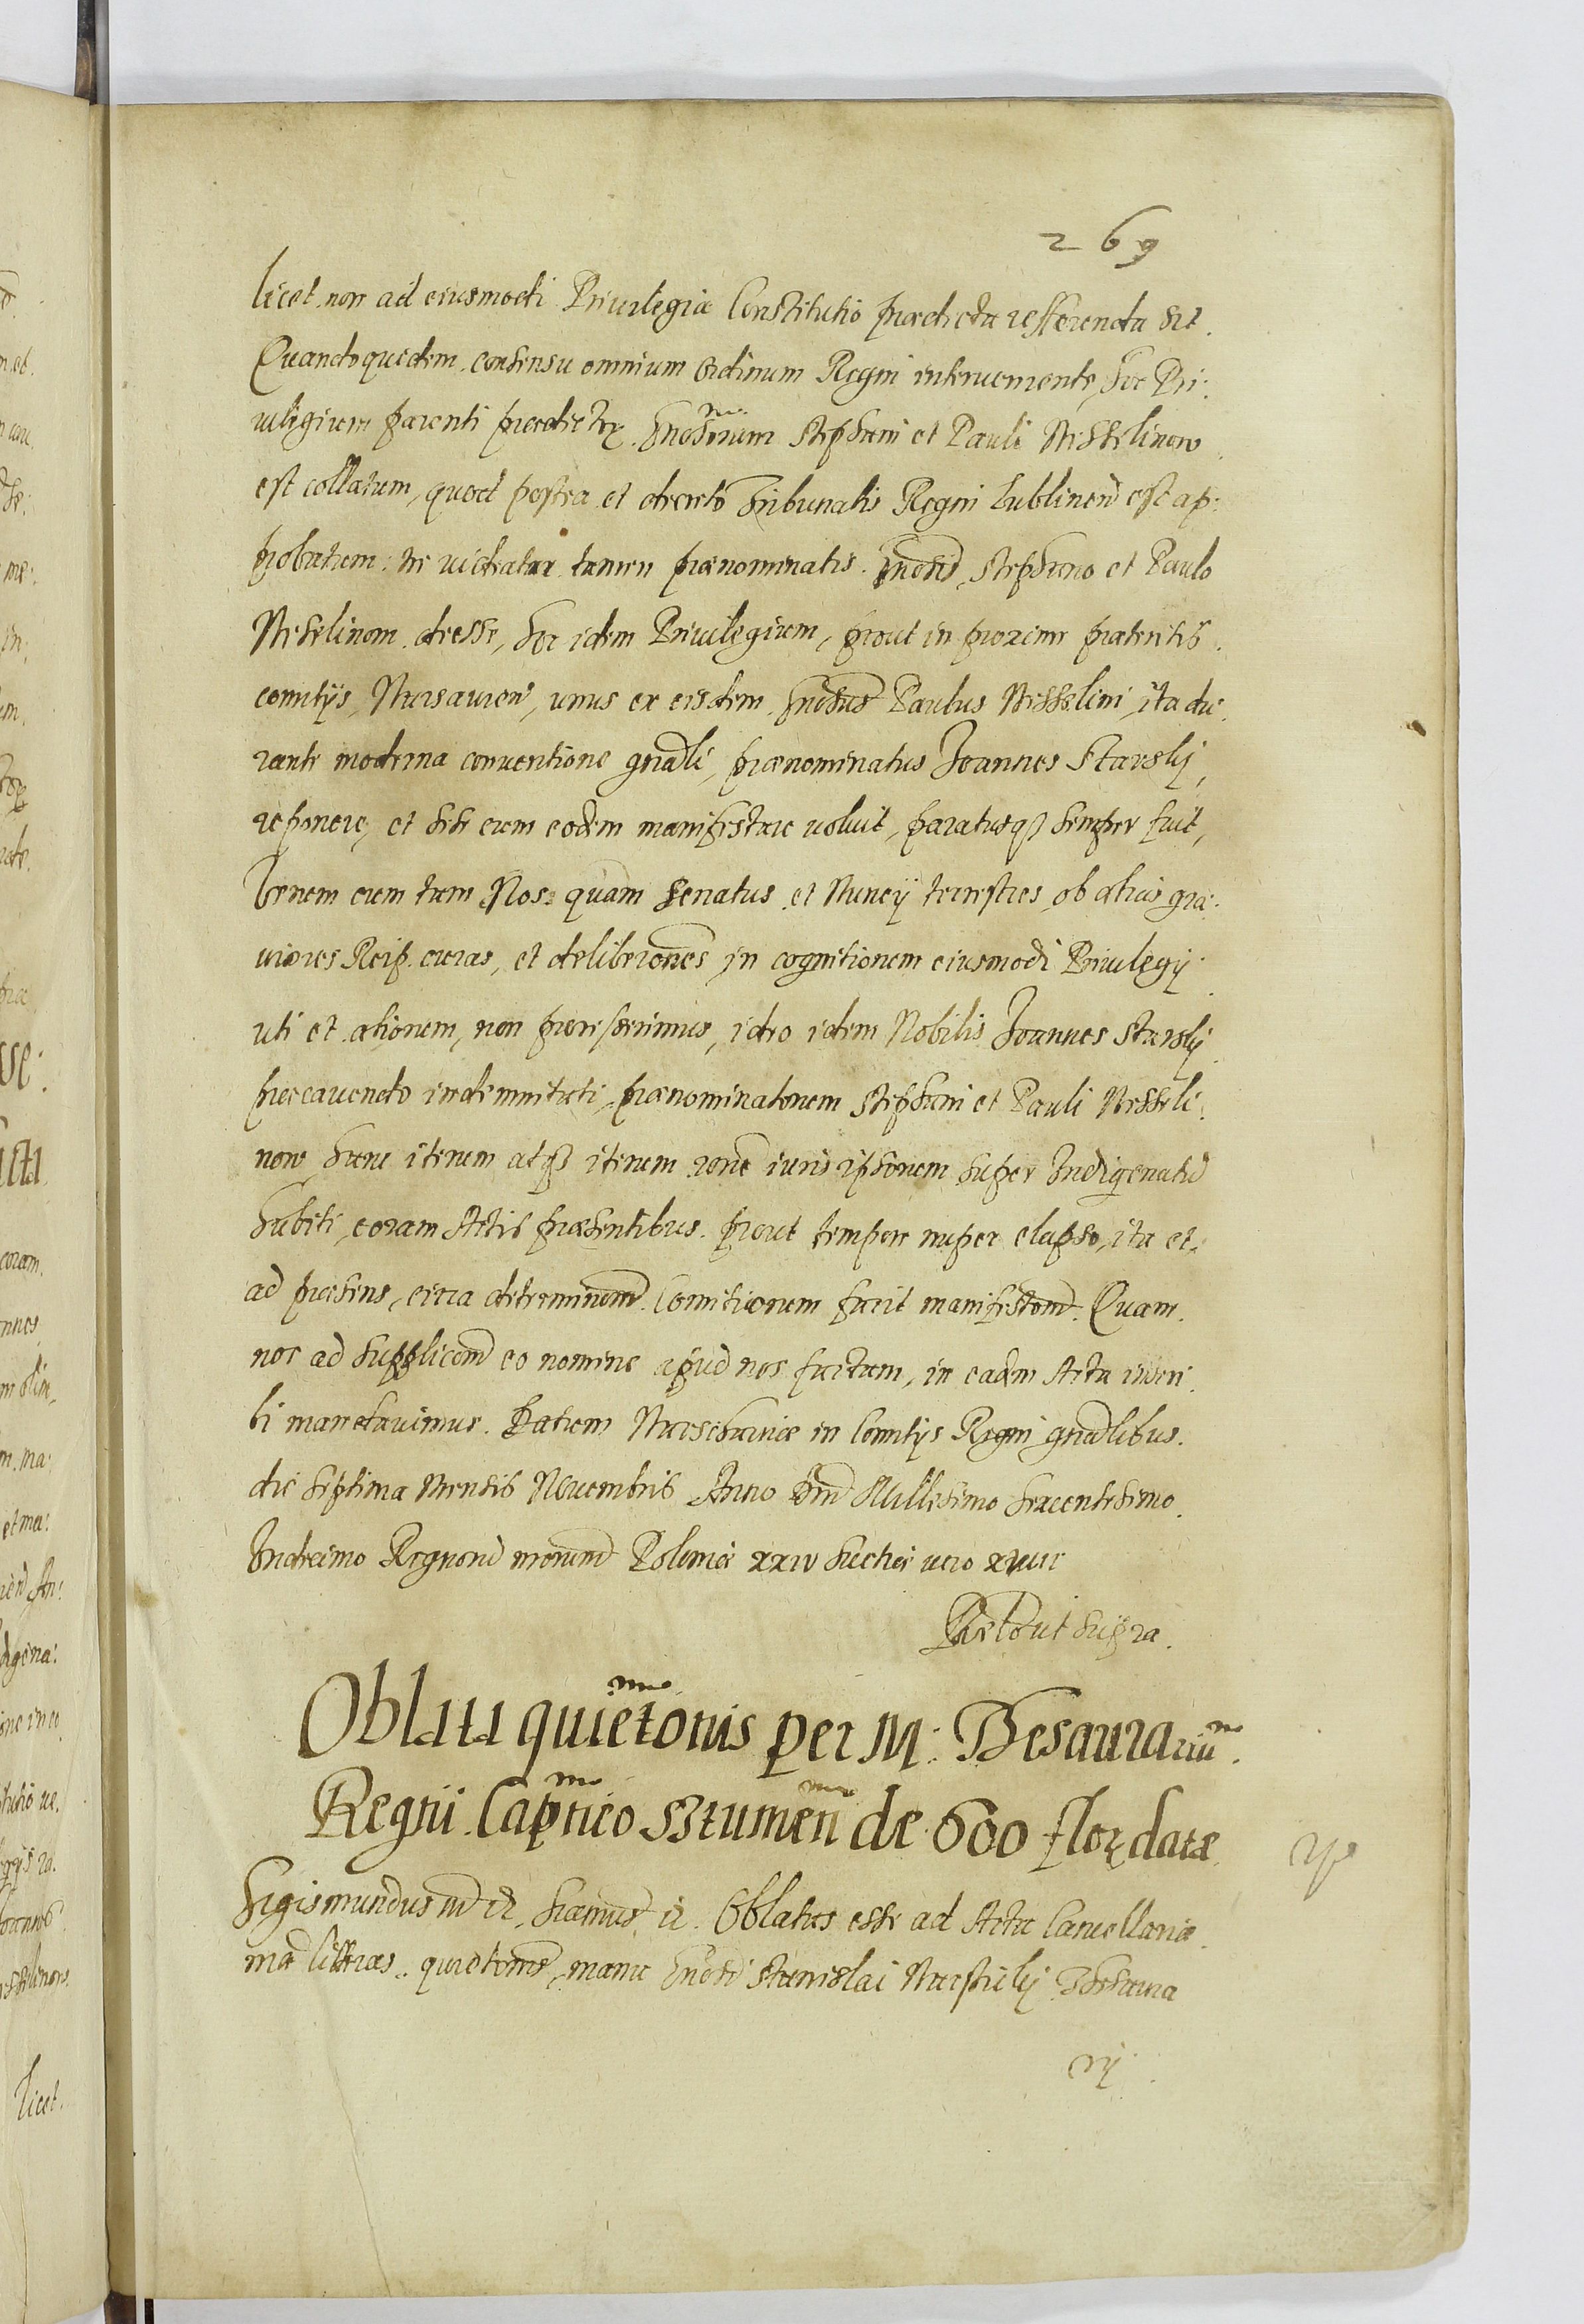 269
licet non ad eiusmodi Priuilegia Constitutio praedicta refferenda sit.
Quandoquidem consensu omnium Ordinum Regni interueniente, hoc Pri:
uilegium parenti Stephani et Pauli
est collatum, quod postea et decreto Tribunalis Regni Lublinen est ap:
probatum: ne uideatur tamen praenominatis Gnosis Stephano et Paulo
deesse, hoc idem Priuilegium, prout in proxime praeteritis
comitijs Warsauien, unus ex eisdem Gnosus Paulus Nesselini, ita du:
rante moderna conuentione gnali, praenominatus Joannes Starsky,
reponere, et sese cum eodem manifestare uoluit, paratusq3 semper fuit,
Verum cum tum Nos quam Senatus et Nuncij terrestres, ob alias gra:
uiores Reip. curas, et deliberones in cognitionem eiusmodi Priuilegij
uti et alionum, non processerimus, ideo idem Nobilis Joannes Starsky
praecauendo indemnitati, praenominatorum Stephani et Pauli Nesseli:
now hanc iterum atq3 iterum rone iuris ipsorum super Indigenatu
habiti, coram Actis praesentibus prout tempore nuper elapso, ita et
ad praesens, circa determinonem Comitiorum facit manifestonem. Quam
nos ad supplicom eo nomine apud nos factam, in eadem Acta inscri
bi mandauimus. Datum Warschauiae in Comitijs Regni gnalibus.
die septima Mensis Nouembris Anno Dni Millesimo Sexcentesimo
Undecimo Regnorum nrorum Poloniae xxiv Sueciae uero xviii
Relo ut supra.
Oblata quietonis per M: Thesaurarium
Regni Capneo Sztumen de 600 flor datae
Sigismundus III etc. Oblatas esse ad Acta Cancellariae
nrae litteras quietonis, manu Gnosi Stanislai Warsicky Thesaura
rij